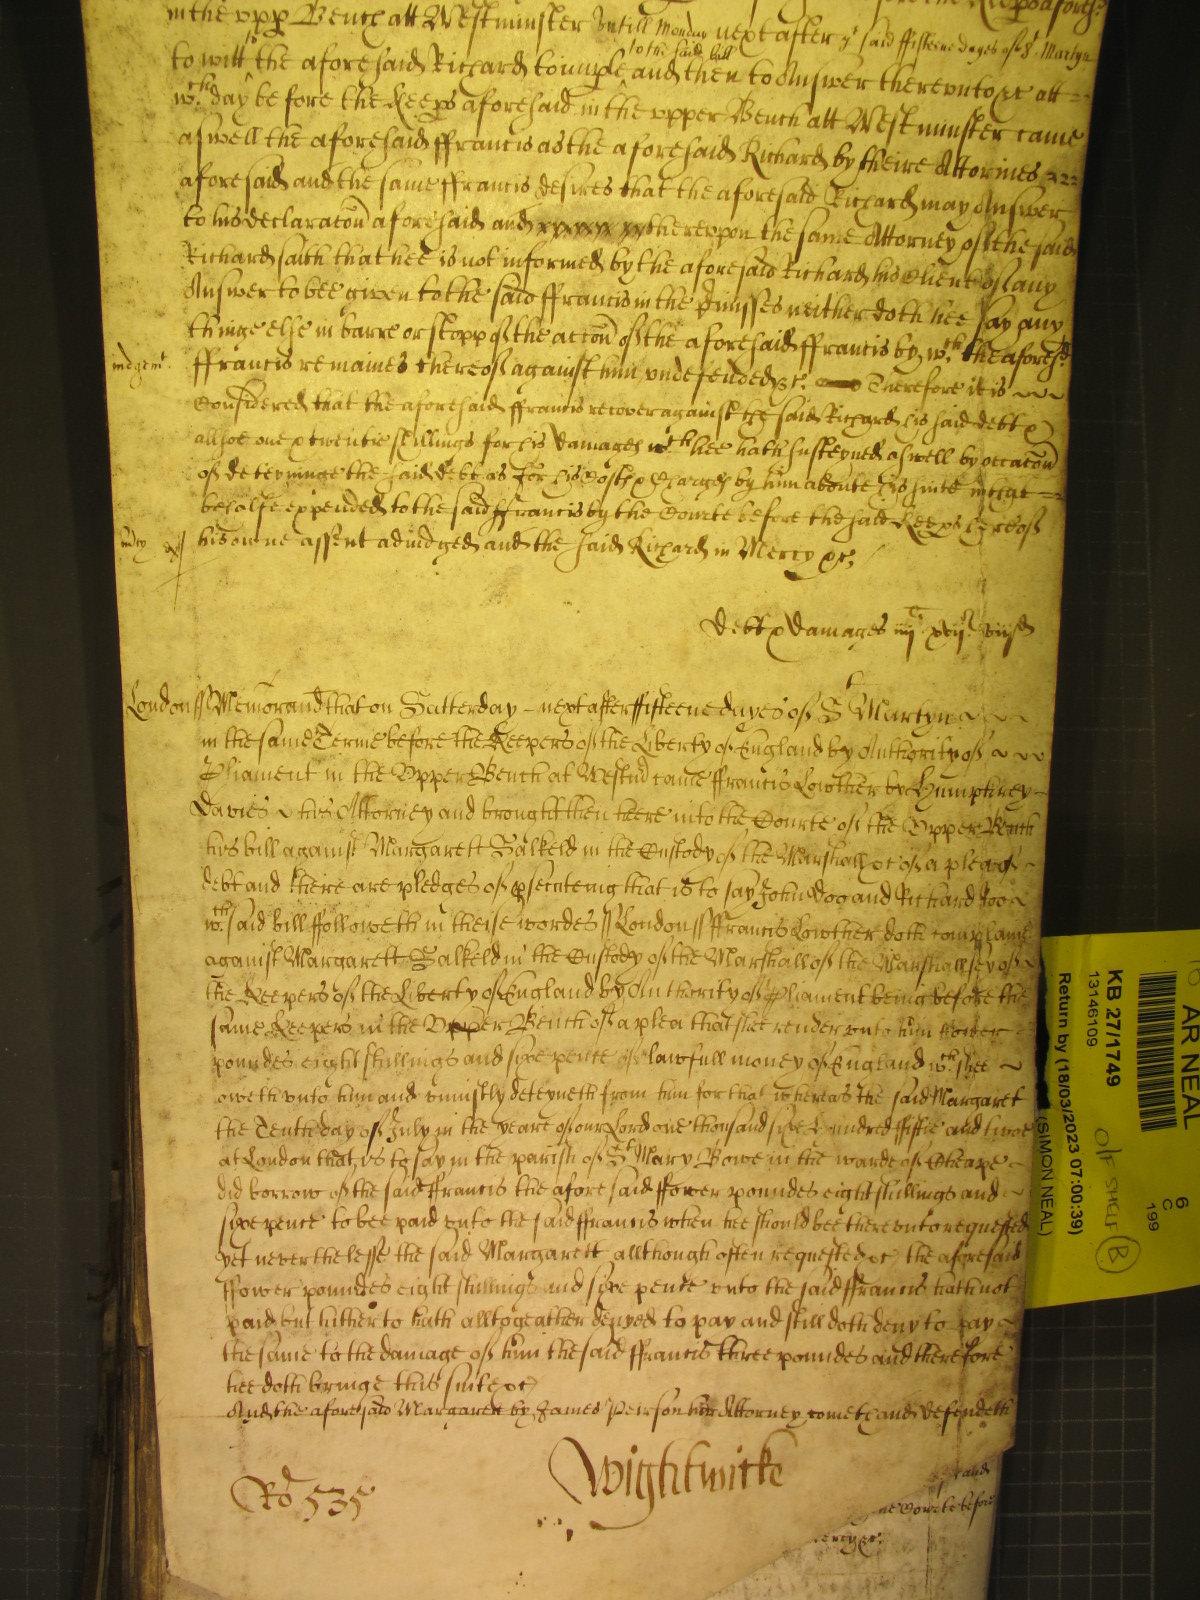 in the upp Bench att Westminster untill Monday next after ye said ffifteene dayes of St. Martyn
to the said bill
to witt the aforesaid Richard to imple and then to Answer thereunto &c att
wch. day before the Keeps aforesaid in the upper Bench att Westminster came
aswell the aforesaid ffrancis as the aforesaid Richard by theire Attornies
aforesaid and the same ffrancis desires that the aforesaid Richard may Answer
to his declaracon aforesaid and thereupon the same Attorney of the said
Richard saith that hee is not informed by the aforesaid Richard his Client of any
Answer to bee given to the said ffrancis in the prmisses neither doth hee say any
thinge else in barre or stopp of the accon of the aforesaid ffrancis by wch. the aforesd
iudgemt. ffrancis remaines thereof against him undefended &c. Therefore it is
Considered that the aforesaid ffrancis recover against the said Richard his said debt &
allsoe one & twentie shillings for his damages wch hee hath susteyned aswell by occacon
of deteyninge the said debt as for his Costs & Charges by him aboute his suite in that
behalfe expended to the said ffrancis by the Courte before the said Keeps hereof
mcy his owne assent adiudged and the said Richard in Mercy &c
Debt & damages iiij c. xvij l. vijs d
London ss Memorand that on Satterday next after ffifteene dayes of St Martyn
in the same Terme before the Keepers of the Liberty of England by Authority of
Pliament in the Upper Bench at Westmr came ffrancis Lowther by Humphrey
Davies his Attorney and brought then heere into the Courte of the Upper Bench
his bill against Margarett Salkeld in the Custody of the Marshall &c of a plea of
debt and there are pledges of psecuteing that is to say John Doo and Richard Roo
wch. said bill ffolloweth in theise wordes ss London ss ffrancis Lowther doth complaine
against Margarett Salkeld in the Custody of the Marshall of the Marshallsey of
the Keepers of the Liberty of England by Authority of Pliament being before the
same Keepers in the Upper Bench of a plea that shee render unto him ffower
poundes eight shillings and sixe pence of lawfull money of England wch. shee
oweth unto him and uniustly deteyneth from him for that whereas the said Margaret
the Tenth day of July in the yeare of our Lord one thousand sixe hundred ffiftie and twoe
at London that is to say in the parish of St Mary Bowe in the warde of Cheape
did borrow of the said ffrancis the aforesaid ffower poundes eight shillings and
sixe pence to bee paid unto the said ffrancis when hee should bee thereunto requested
yet neverthelesse the said Margarett allthough often requested &c the aforesaid
ffower poundes eight shillings and sixe pence unto the said ffrancis hath not
paid but hitherto hath alltogeather denyed to pay and still doth deny to pay
the same to the damage of him the said ffrancis three poundes and therefore
hee doth bringe this suite &c
And the aforesaid Margarett by James Peirson her Attorney cometh and defendeth
Wightwicke
Ro 535
and
Courte before
mercy &c.
TO AR NEAL
KB 27/1749
13146109
Return by (18/03/2023 07:00:39)
(SIMON NEAL)
6
C
199
O/F SHELF
B